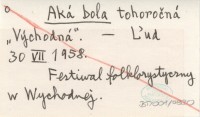 Aká bola tohoročná
"Východná". – Ľud
30 VII 1958.
Festiwal folklorystyczny
w Wychodnej.